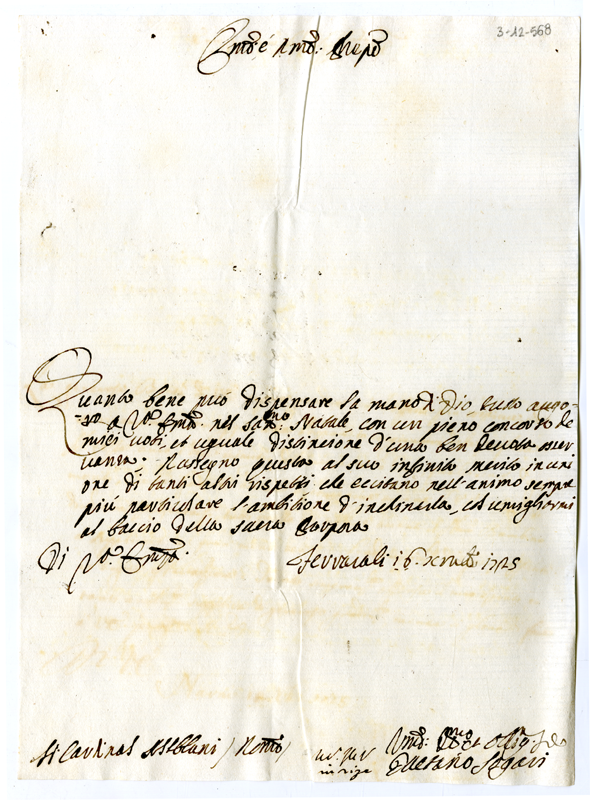 3-12-568
Em.o e
Quanto bene può dispensare la mano di Dio, tutto augu-
=ro a V.a Em.a nel San.mo Natale, con un pieno concorso de
miei voti, et uguale distinzione d'una ben devota osser
vanza. Rassegno questa al suo infinito merito in uni
one di tanti altri rispetti che eccitano nell'animo sempre
più particolare l'ambitione d'inclinarla, ed umigliarmi
al baccio della sacra Porpora
Di V.a Em.za. Ferrara li 16 1725
Si Cardinal / Roma /
Gaetano